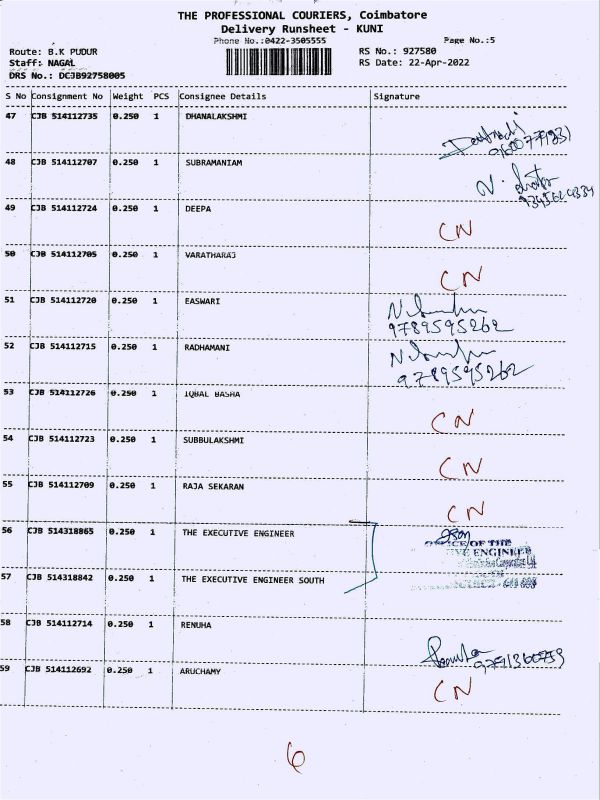 THE PROFESSIONAL COURIERS, Coimbatore
Delivery Runsheet - KUNI
Phone No.:0422-3505555 Page No.:5
Route: B.K PUDUR RS No.: 927580
Staff: NAGAL RS Date: 22-Apr-2022
DRS No.: DCJB92758005
S No Consignment No Weight PCS Consignee Details Signature
47 CJB 514112735 0.250 1 DHANALAKSHMI
48 CJB 514112707 0.250 1 SUBRAMANIAM
49 CJB 514112724 0.250 1 DEEPA CN
50 CJB 514112705 0.250 1 VARATHARAJ CN
51 CJB 514112720 0.250 1 EASWARI
9789595262
52 CJB 514112715 0.250 1 RADHAMANI
9789595262
53 CJB 514112726 0.250 1 IQBAL BASHA CN
54 CJB 514112723 0.250 1 SUBBULAKSHMI CN
55 CJB 514112709 0.250 1 RAJA SEKARAN CN
56 CJB 514318865 0.250 1 THE EXECUTIVE ENGINEER
OF THE
VE ENGINEER
57 CJB 514318842 0.250 1 THE EXECUTIVE ENGINEER SOUTH
58 CJB 514112714 0.250 1 RENUHA
59 CJB 514112692 0.250 1 ARUCHAMY CN
6